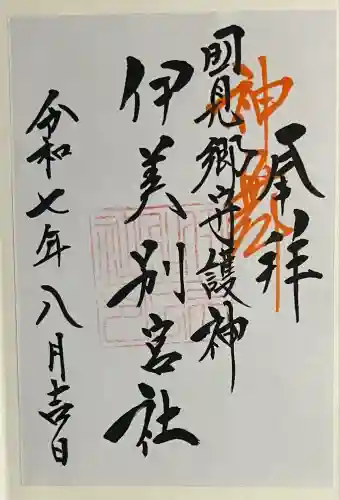 奉拝
神舞
明見郷守護神
伊美別宮社
令和七年八月吉日